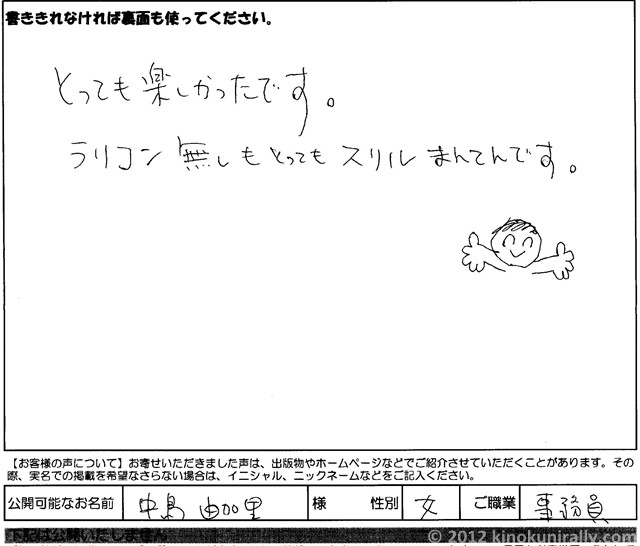 書ききれなければ裏面も使ってください。
とっても楽しかったです。
ラリコン無しもとってもスリルまんてんです。
【お客様の声について】お寄せいただきました声は、出版物やホームページなどでご紹介させていただくことがあります。その
際、実名での掲載を希望なさらない場合は、イニシャル、ニックネームなどをご記入ください。
公開可能なお名前 中島 由加里 様 性別 女 ご職業 事務員
下記は公開いたしません
© 2012 kinokunirally.com